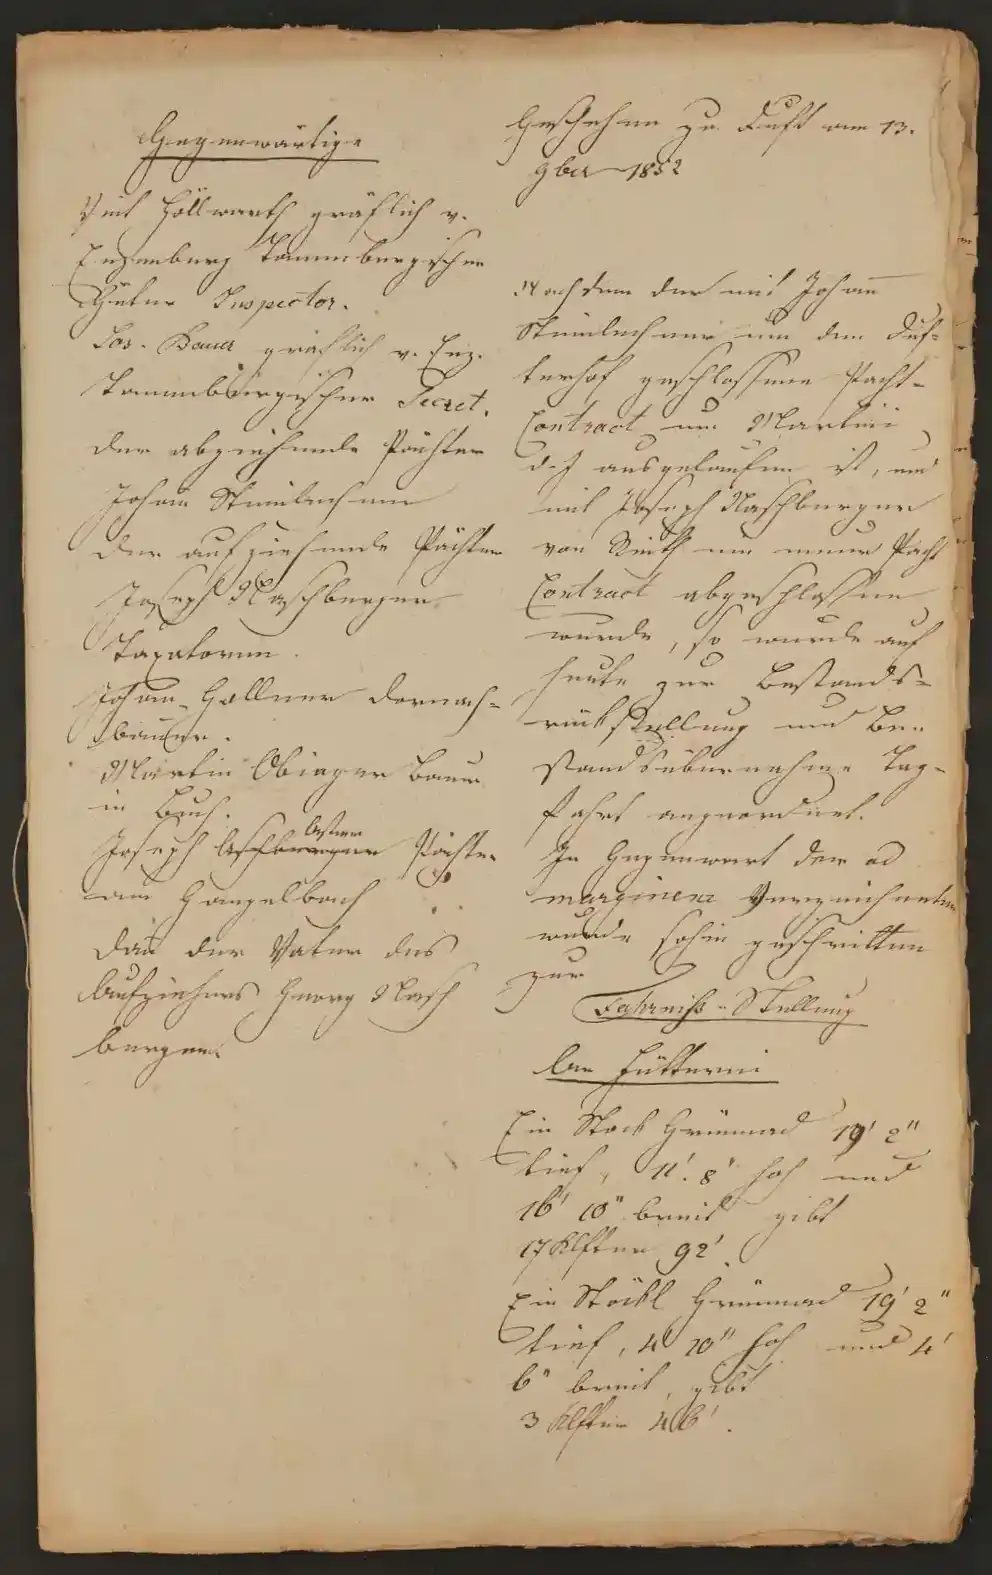 Gegenwärtige
Veit Höllwarth gräflich v.
Enzenburg Tannenbergischer
Güter Inspector.
Jos. Bauer gräflich v. Enz.
Tannenbergischer Secret.
Der abziehende Pächter
Johann Steinlechner
der aufziehende Pächter
Joseph Naschberger
Taxatoren
Johann Hallner Dornach-
bauer.
Martin Obinger Bauer
in Buch.
Joseph Astner Pächter
am Gangelbach
dann der Vater des
Aufziehers Georg Nasch
berger.
Geschehen zu Duft am 13.
9ber 1852
Nachdem der mit Johann
Steinlechner um den Duf-
terhof geschlossene Pacht-
Contract um Martini
d. J ausgelaufen ist, und
mit Joseph Naschberger
von Reith ein neuer Pacht
Contract abgeschlossen
wurde, so wurde auf
heute zur Bestands-
rückstellung und Be-
standsübernahme Tag-
fahrt angeordnet.
In Gegenwart der ad
marginem Verzeichneten
wurde sohin geschritten
zur
Fahrniß-Stellung
An Fütterei
Ein Stock Grummad 19' 2"
tief, 11'. 8" hoh und
16' 10" breit gibt
17 Klfter 92'
Ein Stöckl Grummad 19' 2"
tief, 4' 10" hoh und 4'
6" breit, gibt
3 Klfter 46'.